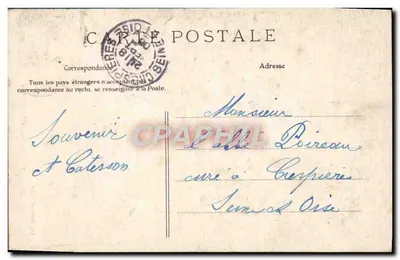 CARTE POSTALE
Correspondance
Adresse
Tous les pays étrangers n'acceptent
correspondance au recto, se renseigner à la Poste.
CRESPIERES
SEINE ET OISE
Souvenir
Monsieur
l'abbé Poireau
curé à Crespières
Seine et Oise
CPAPHIL